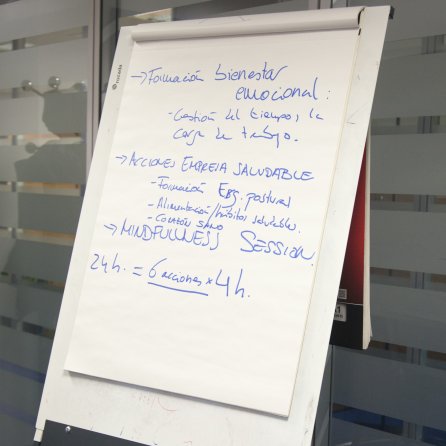 → Formación bienestar
emocional:
- Gestión del tiempo y la
carga de trabajo.
→ ACCIONES EMPRESA SALUDABLE
- Formación Erg. postural
- Alimentación/hábitos saludables.
- CORAZÓN SANO
→ MINDFULLNESS SESSION.
24h. = 6 acciones * 4h.